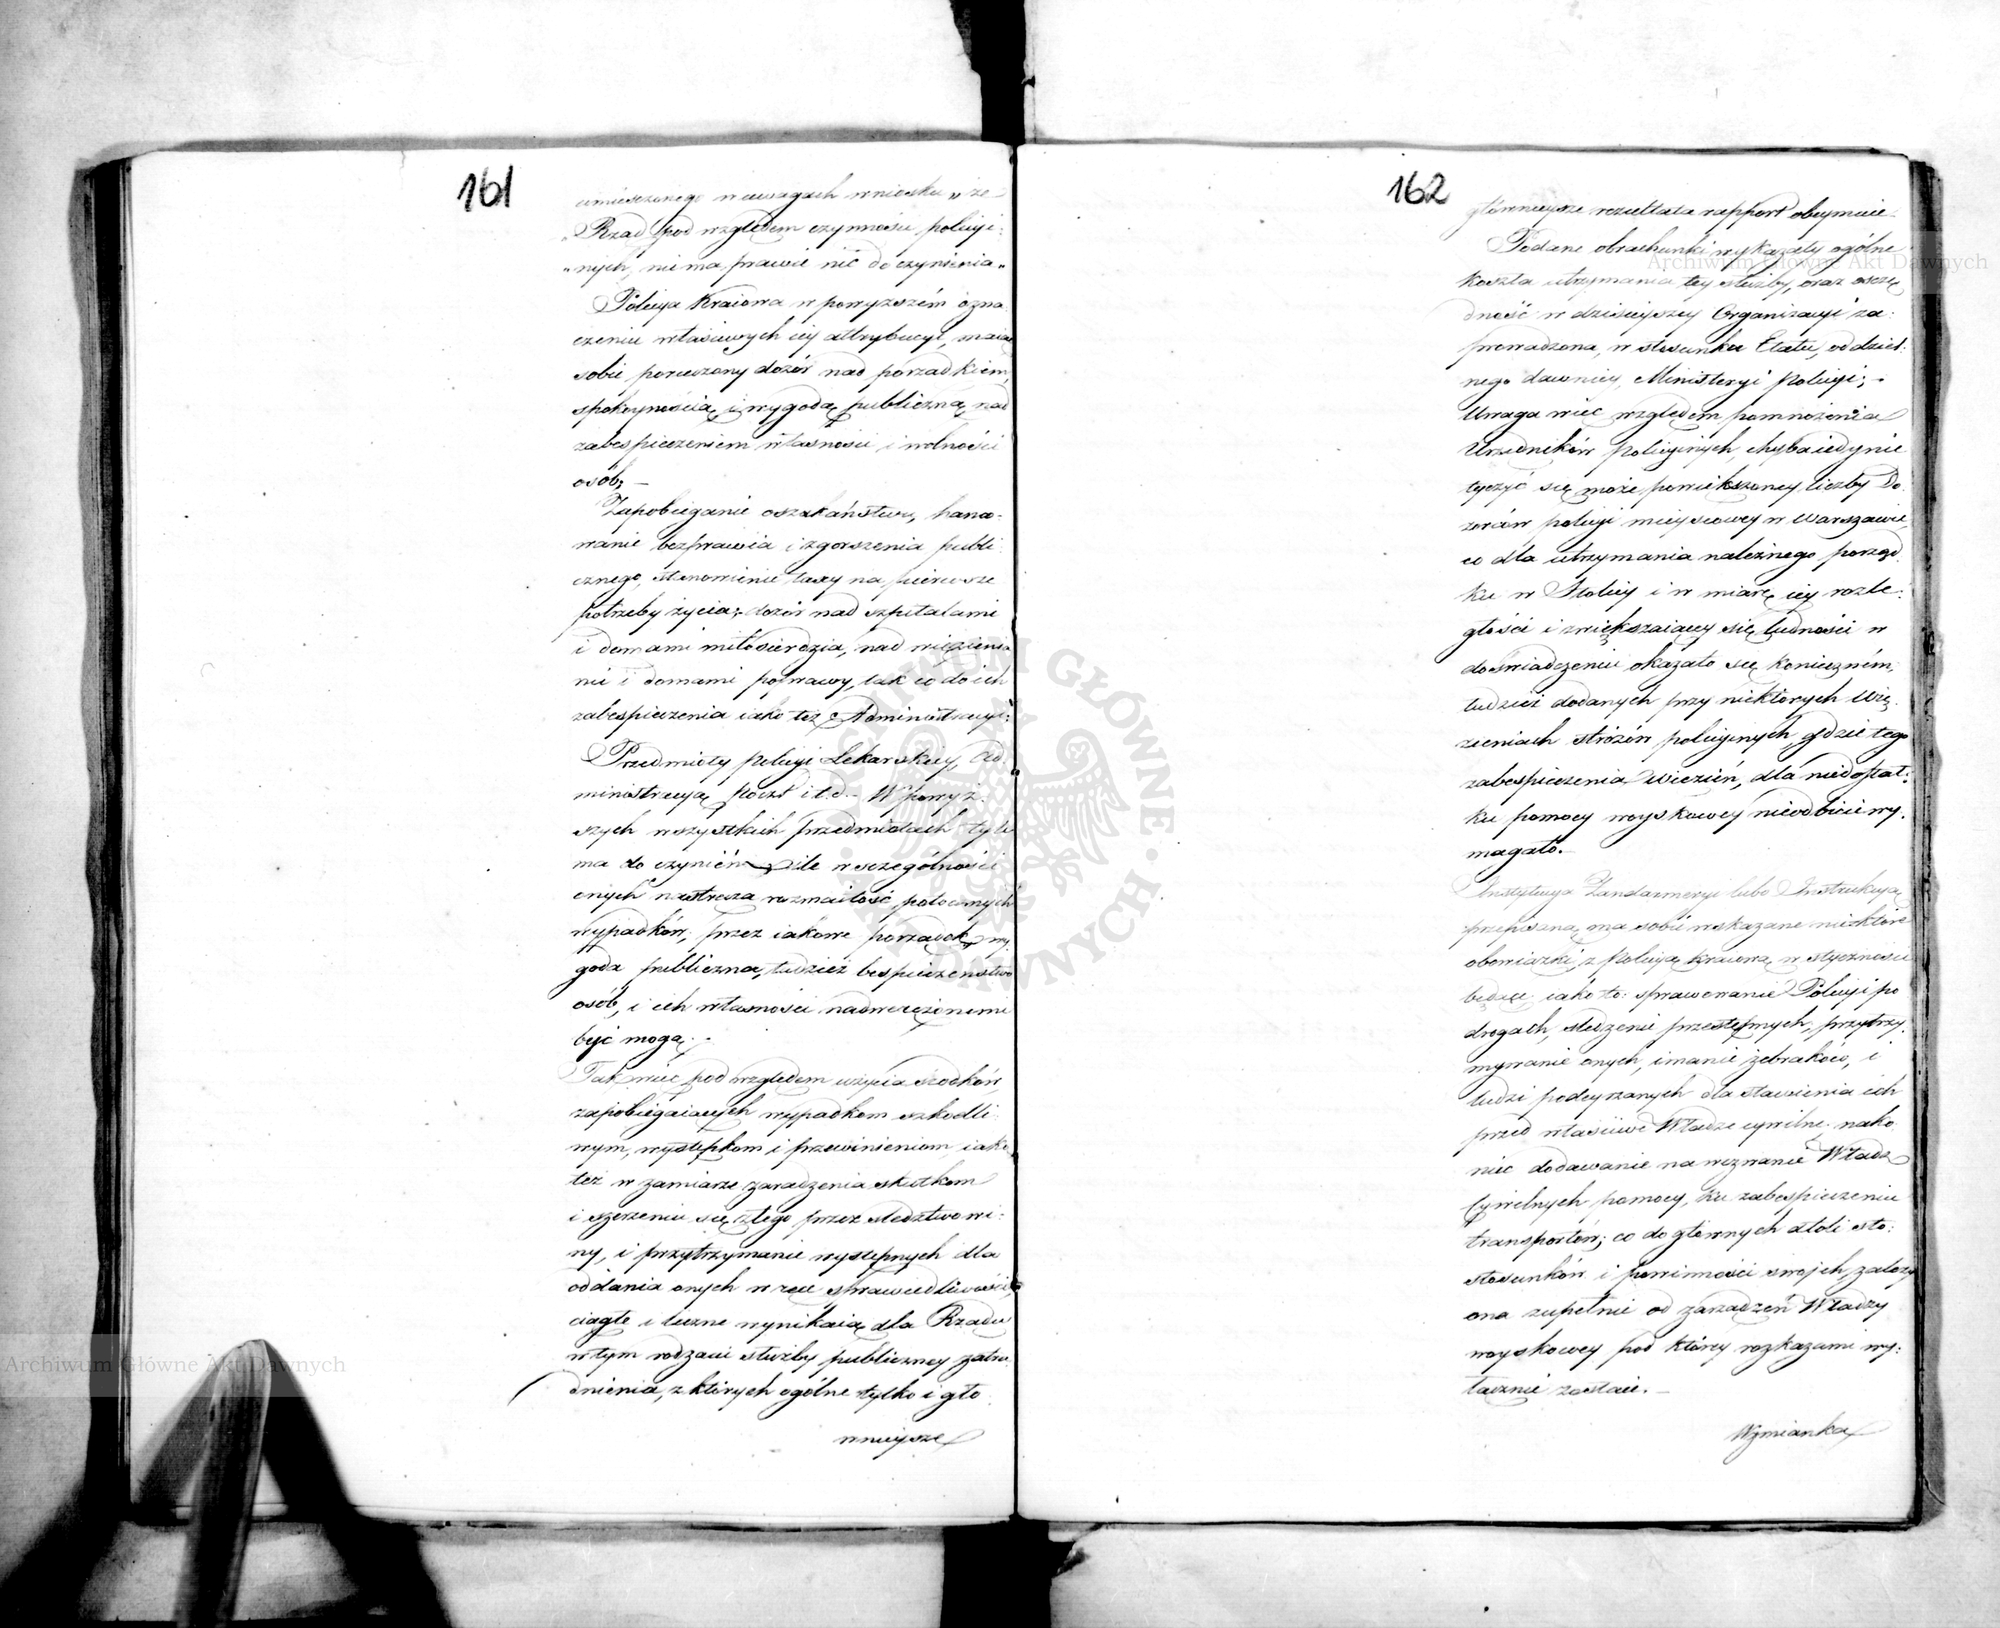 161
umieszczonego w uwagach wniosku „że
„Rząd pod względem czynności policyi:
„nych, nie ma prawie nic do czynienia„
Policya Kraiowa w powyższém ozna
czeniu właściwych iéy attrybucyi, maiąc
sobie poruczony dozór nad porządkiem,
spokoynością i wygodą publiczną, nad
zabespieczeniem własności i wolności
osób; —
Zapobieganie oszukaństwu, hamo-
wanie bezprawia i zgorszenia publi
cznego, stanowienie taxy na pierwsze
potrzeby życia; dozór nad szpitalami
i domami miłosierdzia, nad więzienia
mi i domami poprawy, tak co do ich
zabespieczenia iako też Administracyi;
Przedmioty policyi Lekarskiey, Ad
ministracyą poczt i t. d. - W powyż
szych wszystkich przedmiotach tyle
ma do czynienia, ile w szczególności
onych nastręcza rozmaitość potocznych
wypadków, przez iakowe porządek, wy
goda publiczna, tudzież bespieczeństwo
osób, i ich własności nadwerężonemi
być mogą.
Tak więc pod względem użycia srodków
zapobiegaiących wypadkom szkodli
wym, występkom i przewinieniom iako
też w zamiarze zaradzenia skutkom
i szerzeniu się złego przez sledztwo wi:
ny, i przytrzymanie występnych dla
oddania onych w ręce sprawiedliwości,
ciągłe i liczne wynikaią dla Rządu
w tym rodzaiu służby publiczney zatru
dnienia, z których ogólne tylko i głó
wnieysze
162
główneysze rezultata rapport obeymuie.
Podane obrachunki wykazały ogólne
koszta utrzymania tey służby, oraz oszczę
dność w dzisieyszey Organizacyi za:
prowadzoną, w stosunku Etatu, oddziel:
nego dawniey Ministeryi Policyi; -
Uwaga więc względem pomnożenia
Urzędników Policyinych, chyba iedynie
tyczyć się może powiększoney liczby Do
zorców policyi mieyscowey w Warszawie
co dla utrzymania należnego porząd
ku w Stolicy i w miarę iéy rozle:
głości i zwiększaiącey się ludności w
doświadczeniu okazało się koniecznem,
tudzież dodanych przy niektórych Wię
zieniach stróżów policyinych, gdzie tego
zabespieczenia więzień, dla niedostat:
ku pomocy woyskowey nieodbicie wy.
magało.
Instytucya Żandarmeryi lubo Instrukcyą
przepisaną ma sobie wskazane niektóre
obowiązki, z Policyą kraiową w styczności
będące iako to: sprawowanie Policyi po
drogach, sledzenie przestępnych, przytrzy.
mywanie onych, imanie żebraków, i
ludzi podeyrzanych dla stawienia ich
przed właściwe Władze cywilne nako
niec dodawanie na wezwanie Władz
Cywilnych pomocy, ku zabespieczeniu
transportów; co do głównych atoli sto:
stosunków i powinności swojch, zależy
ona zupełnie od zarządzeń Władzy
woyskowey pod którey rozkazami wy:
łącznie zostaie. —
Wzmianka
Archiwum Główne Akt Dawnych
Archiwum Główne Akt Dawnych
ARCHIWUM GŁÓWNE AKT DAWNYCH